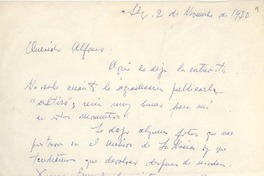 Stgo, 2 de Noviembre de 1970
Querido Alfonso
Aquí te dejo la entrevista.
No sabes cuánto te agradecería publicarla
sería muy bueno para mí
en estos momentos
Te dejo algunas fotos que me
prestaron en el archivo de La Nación y que
tendremos que devolver después de usadas.